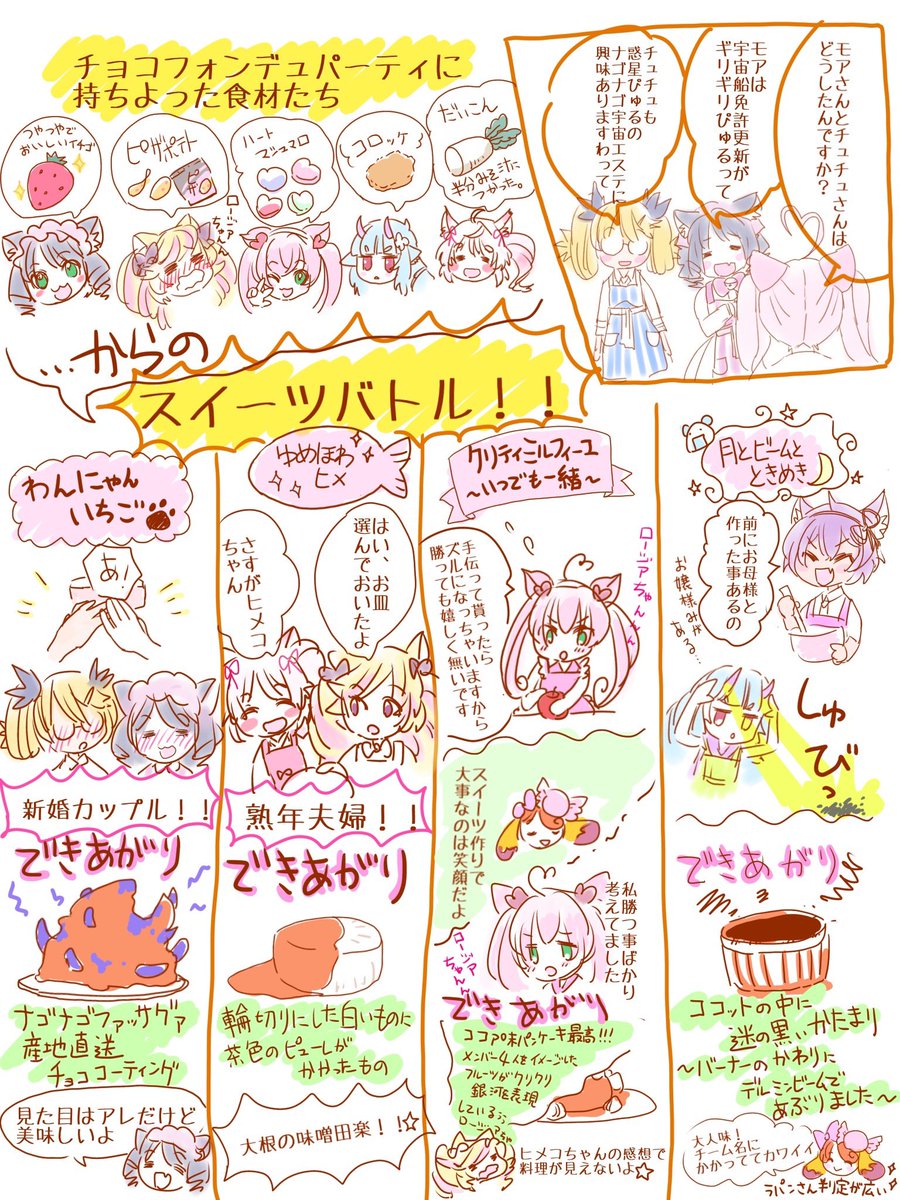 チョコフォンデュパーティに
持ちよった食材たち
モアさんとチュチュさんは
どうしたんですか?
モアは
宇宙船免許更新が
ギリギリぴゅるって
チュチュも
惑星ぴゅるの
ナゴナゴ宇宙エステに
興味ありますわって
つやつやで
おいしいイチゴ
ピザポテト
ロージア
ちゃん
ハート
マシュマロ
コロッケ
だいこん
半分みそ汁に
つかった。
…からの
スイーツバトル!!
わんにゃん
いちご
あ!
新婚カップル!!
できあがり
ナゴナゴファッサグァ
産地直送
チョココーティング
見た目はアレだけど
美味しいよ
ゆめほわ
ヒメ
はい、お皿
選んでおいたよ
さすがヒメコ
ちゃん
熟年夫婦!!
できあがり
輪切りにした白いものに
茶色のピューレが
かかったもの
大根の味噌田楽!!☆
クリティミルフィーユ
~いつでも一緒~
ロージアちゃん
手伝って貰ったら
ズルになっちゃいますから
勝っても嬉しく無いです
スイーツ作りで
大事なのは笑顔だよ
私勝つ事ばかり
考えてました
ロージアちゃん
できあがり
ココア味パンケーキ最高!!!
メンバー4人をイメージした
フルーツがクリクリ
銀河を表現
している
ロージアちゃ
ヒメコちゃんの感想で
料理が見えないよ☆
月とビームと
ときめき
前にお母様と
作った事あるの
お嬢様みが
ある…
しゅびっ
できあがり
ココットの中に
謎の黒いかたまり
~バーナーのかわりに
デルミンビームで
あぶりました~
大人味!
チーム名に
かかっててカワイイ
ラパンさん判定が広い